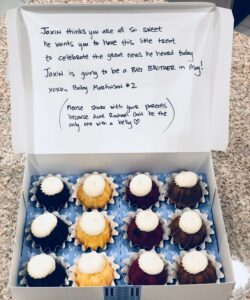 JAXIN thinks you are all so sweet
he wants you to have this little treat
to celebrate the great news he heard today
JAXIN is going to be a BIG BROTHER in May!
xoxo, Baby Martinson #2
(Please share with your parents
because Aunt Rachael can't be the
only one with a belly ♡)